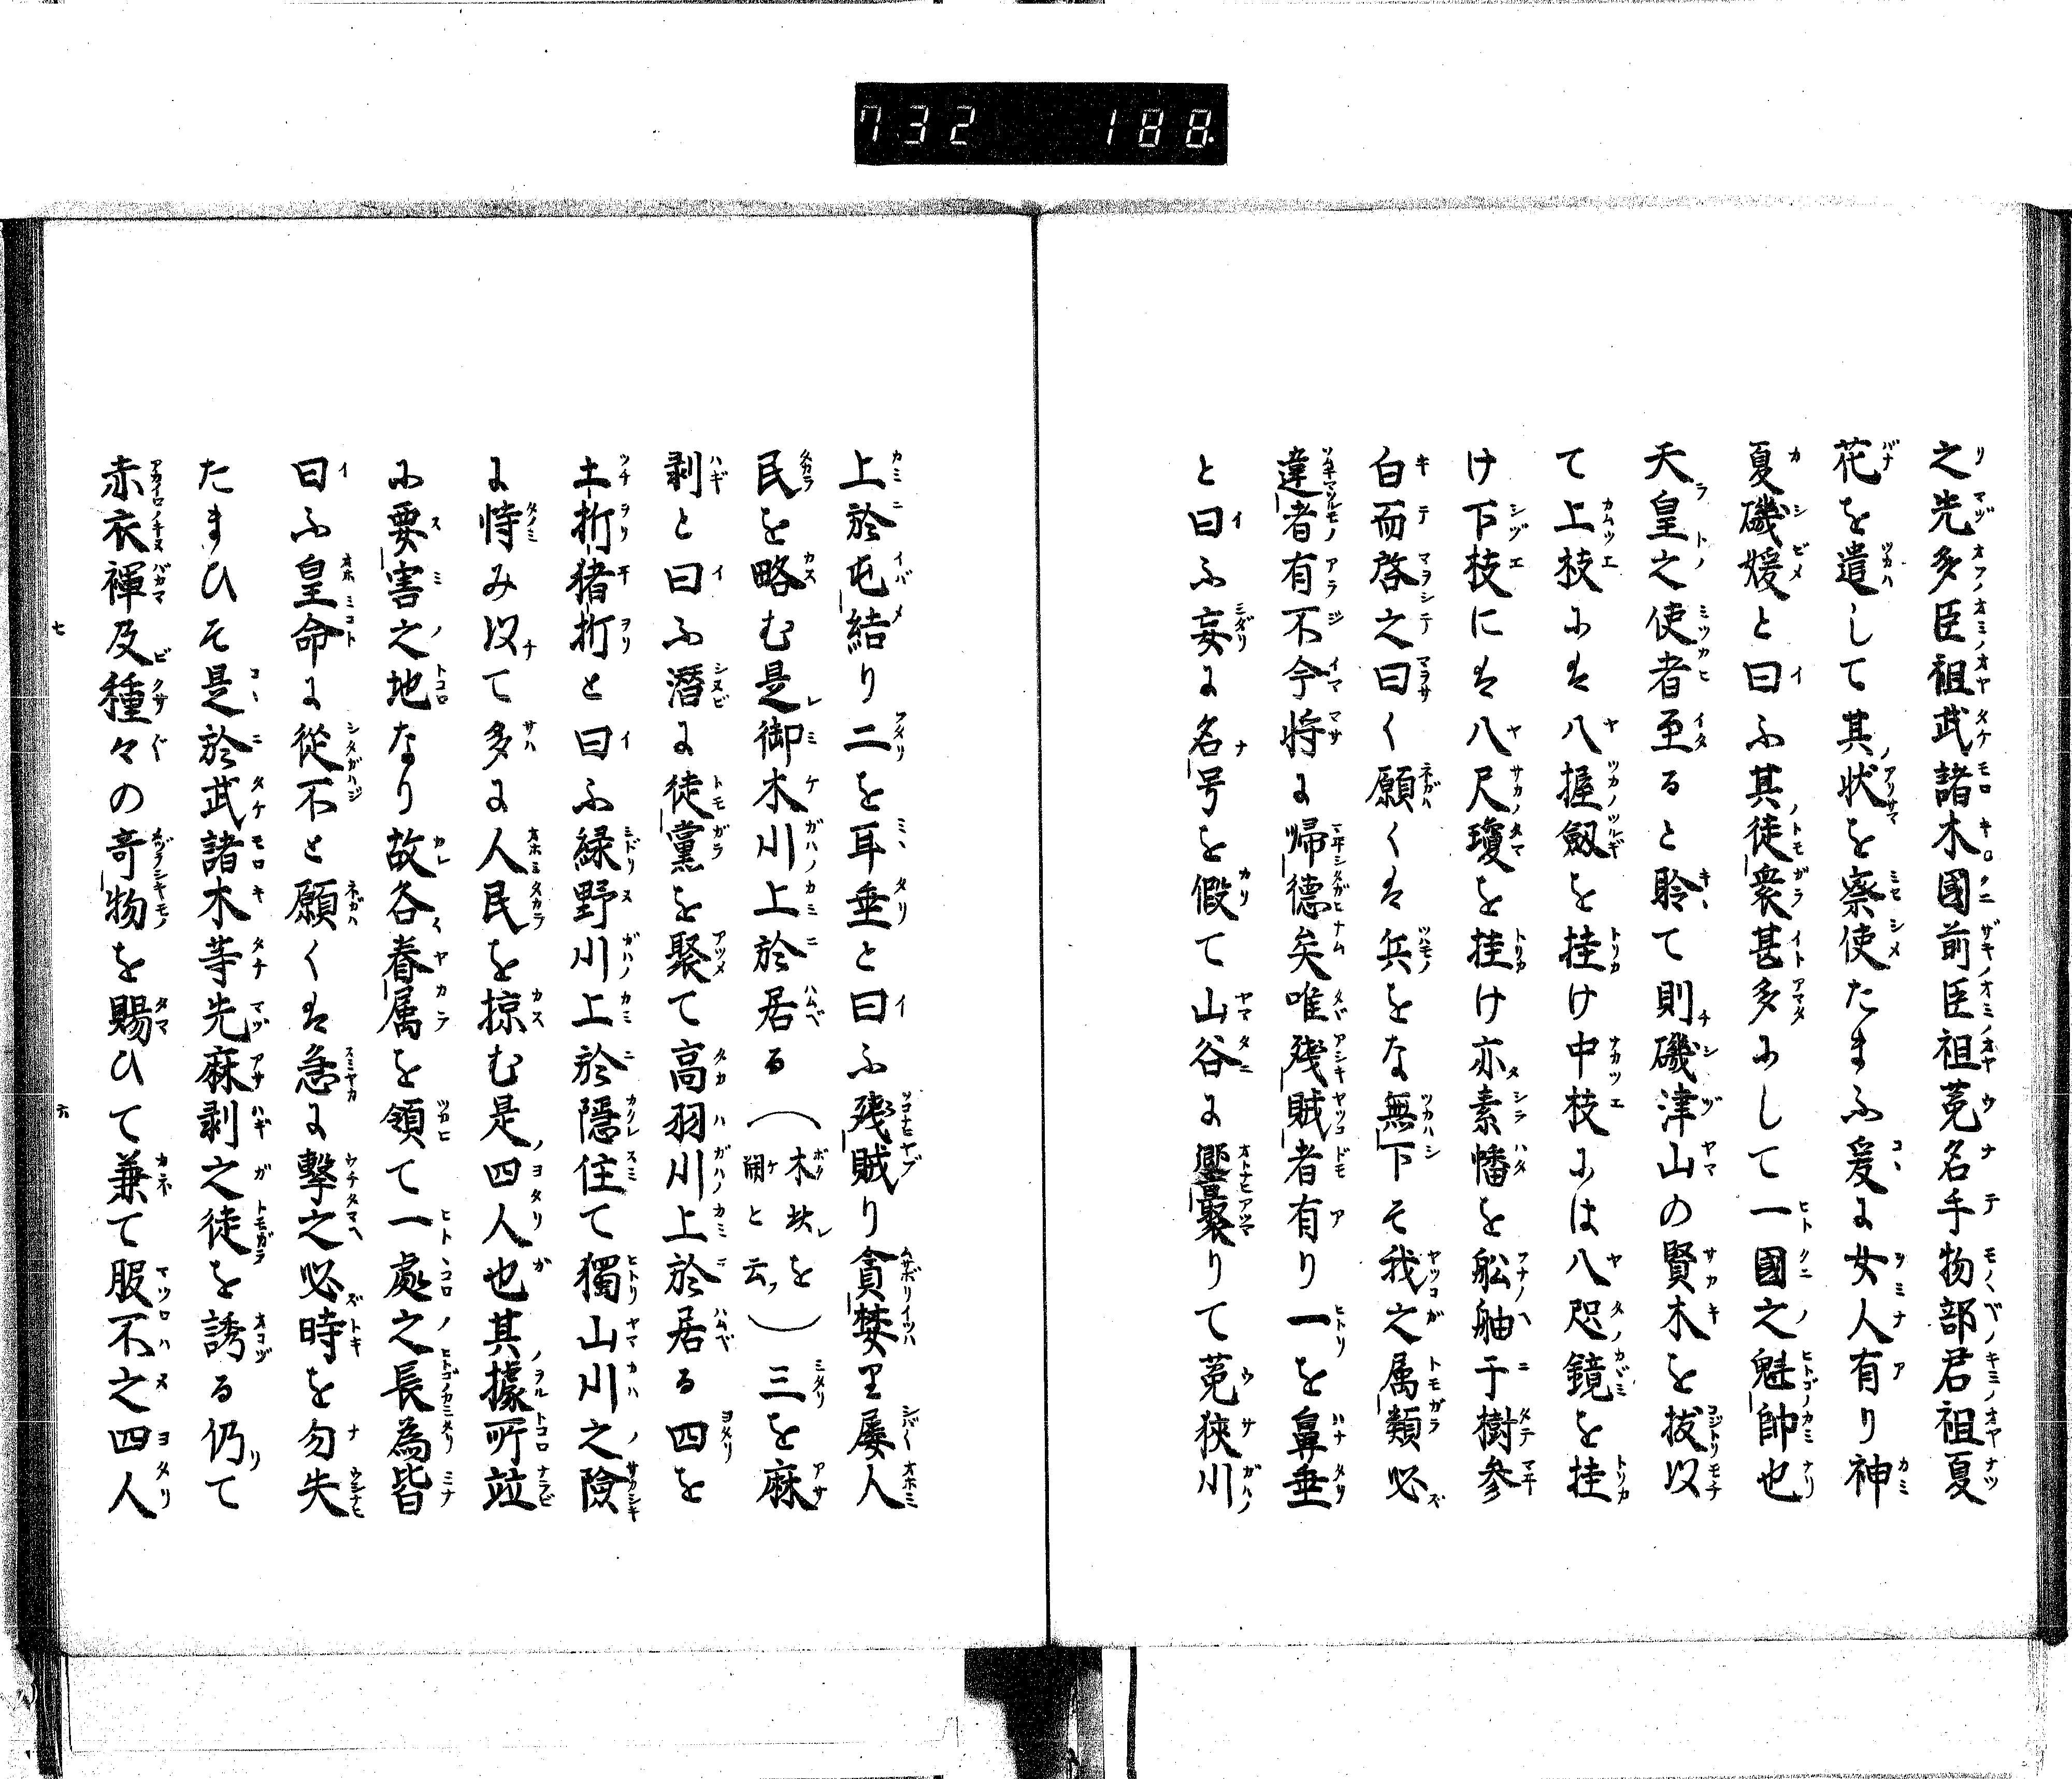 732 188
之先多臣祖武諸木國前臣祖菟名手物部君祖夏
花を遣して其状を察使たまふ爰に女人有り神
夏磯媛と曰ふ其徒衆甚多にして一國之魁帥也
天皇之使者至ると聆て則磯津山の賢木を抜以
て上枝には八握劔を挂け中枝には八咫鏡を挂
け下枝には八尺瓊を挂け亦素幡を舩舳于樹参
白而啓之曰く願くは兵をな無下そ我之属類必
違者有不今将に帰徳矣唯残賊者有り一を鼻垂
と曰ふ妄に名号を假て山谷に響聚りて菟狹川
上於屯結り二を耳垂と曰ふ残賊り貪婪里屡人
民を略む是御木川上於居る（木状を開と云フ）三を麻
剥と曰ふ潛に徒黨を聚て高羽川上於居る四を
土折猪折と曰ふ緑野川上於隱住て獨山川之險
に恃み以て多に人民を掠む是四人也其據所竝
に要害之地なり故各眷属を領て一處之長為皆
曰ふ皇命に從不と願くは急に擊之必時を勿失
たまひそ是於武諸木等先麻剥之徒を誘る仍て
赤衣褌及種々の奇物を賜ひて兼て服不之四人
七 六